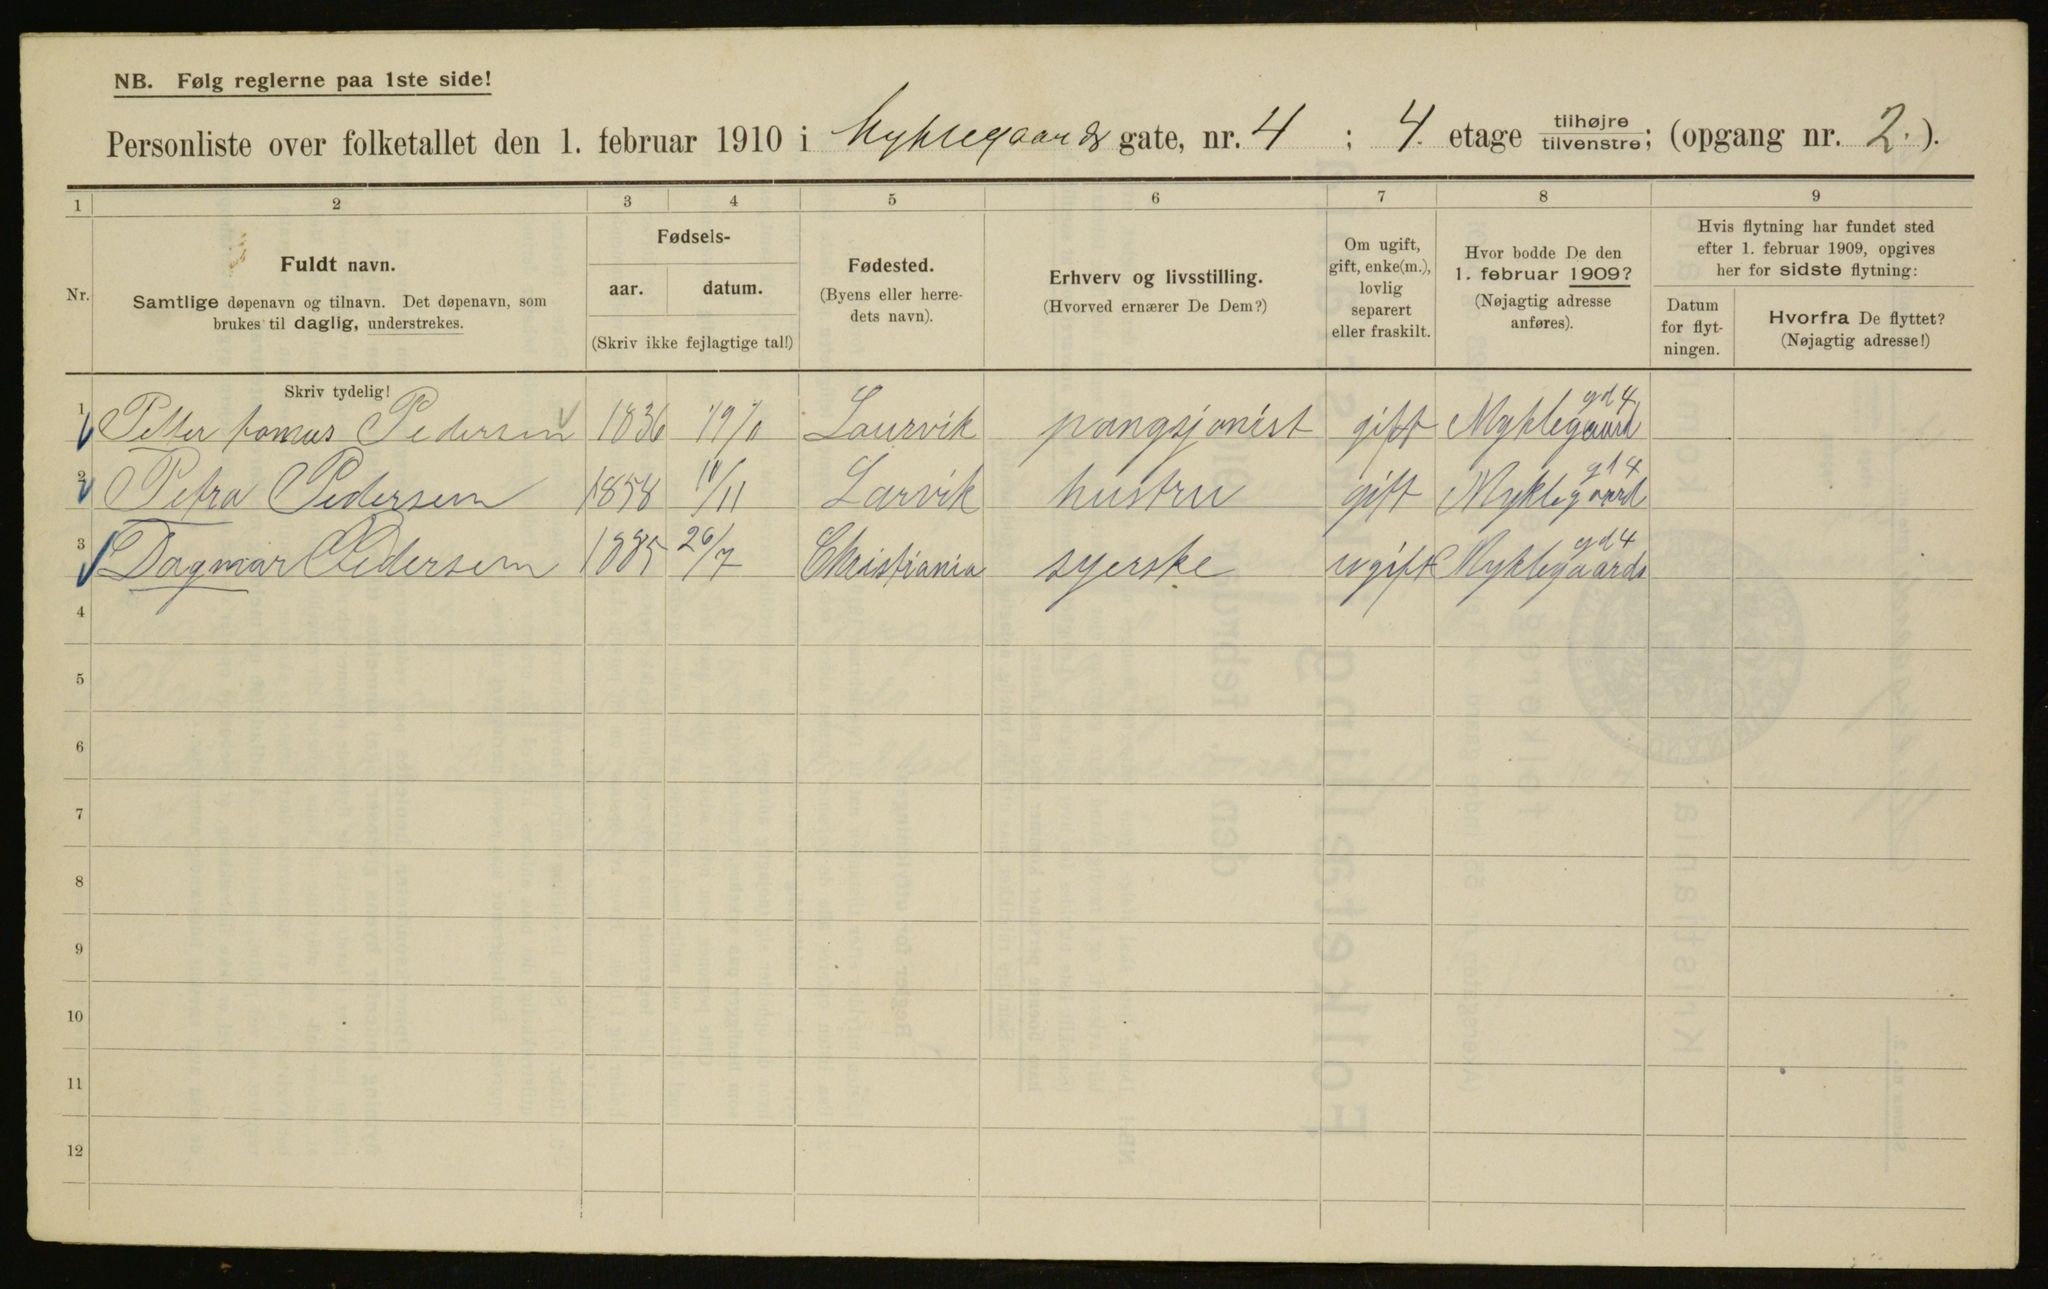 NB. Følg reglerne paa 1ste side!
Personliste over folketallet den 1. februar 1910 i Myklegaards gate, nr. 4 ; 4. etage tilhøjre tilvenstre; (opgang nr. 2.).
1 2 3 4 5 6 7 8 9
Nr.
Fuldt navn.
Samtlige døpenavn og tilnavn. Det døpenavn, som
brukes til daglig, understrekes.
Fødsels-
aar. datum.
(Skriv ikke fejlagtige tal!)
Fødested.
(Byens eller herre-
dets navn).
Erhverv og livsstilling.
(Hvorved ernærer De Dem?)
Om ugift,
gift, enke(m.),
lovlig
separert
eller fraskilt.
Hvor bodde De den
1. februar 1909?
(Nøjagtig adresse
anføres).
Hvis flytning har fundet sted
efter 1. februar 1909, opgives
her for sidste flytning:
Datum
for flyt-
ningen.
Hvorfra De flyttet?
(Nøjagtig adresse!)
Skriv tydelig!
1 Petter Pedersen 1836 Laurvik pangsjonist gift Myklegaard gd 4
2 Petra Pedersen 1858 11/11 Larvik hustru gift Myklegaard gd 4
3 Dagmar Pedersen 1885 26/7 Christiania syerske ugift Myklegaards gd 4
4
5
6
7
8
9
10
11
12